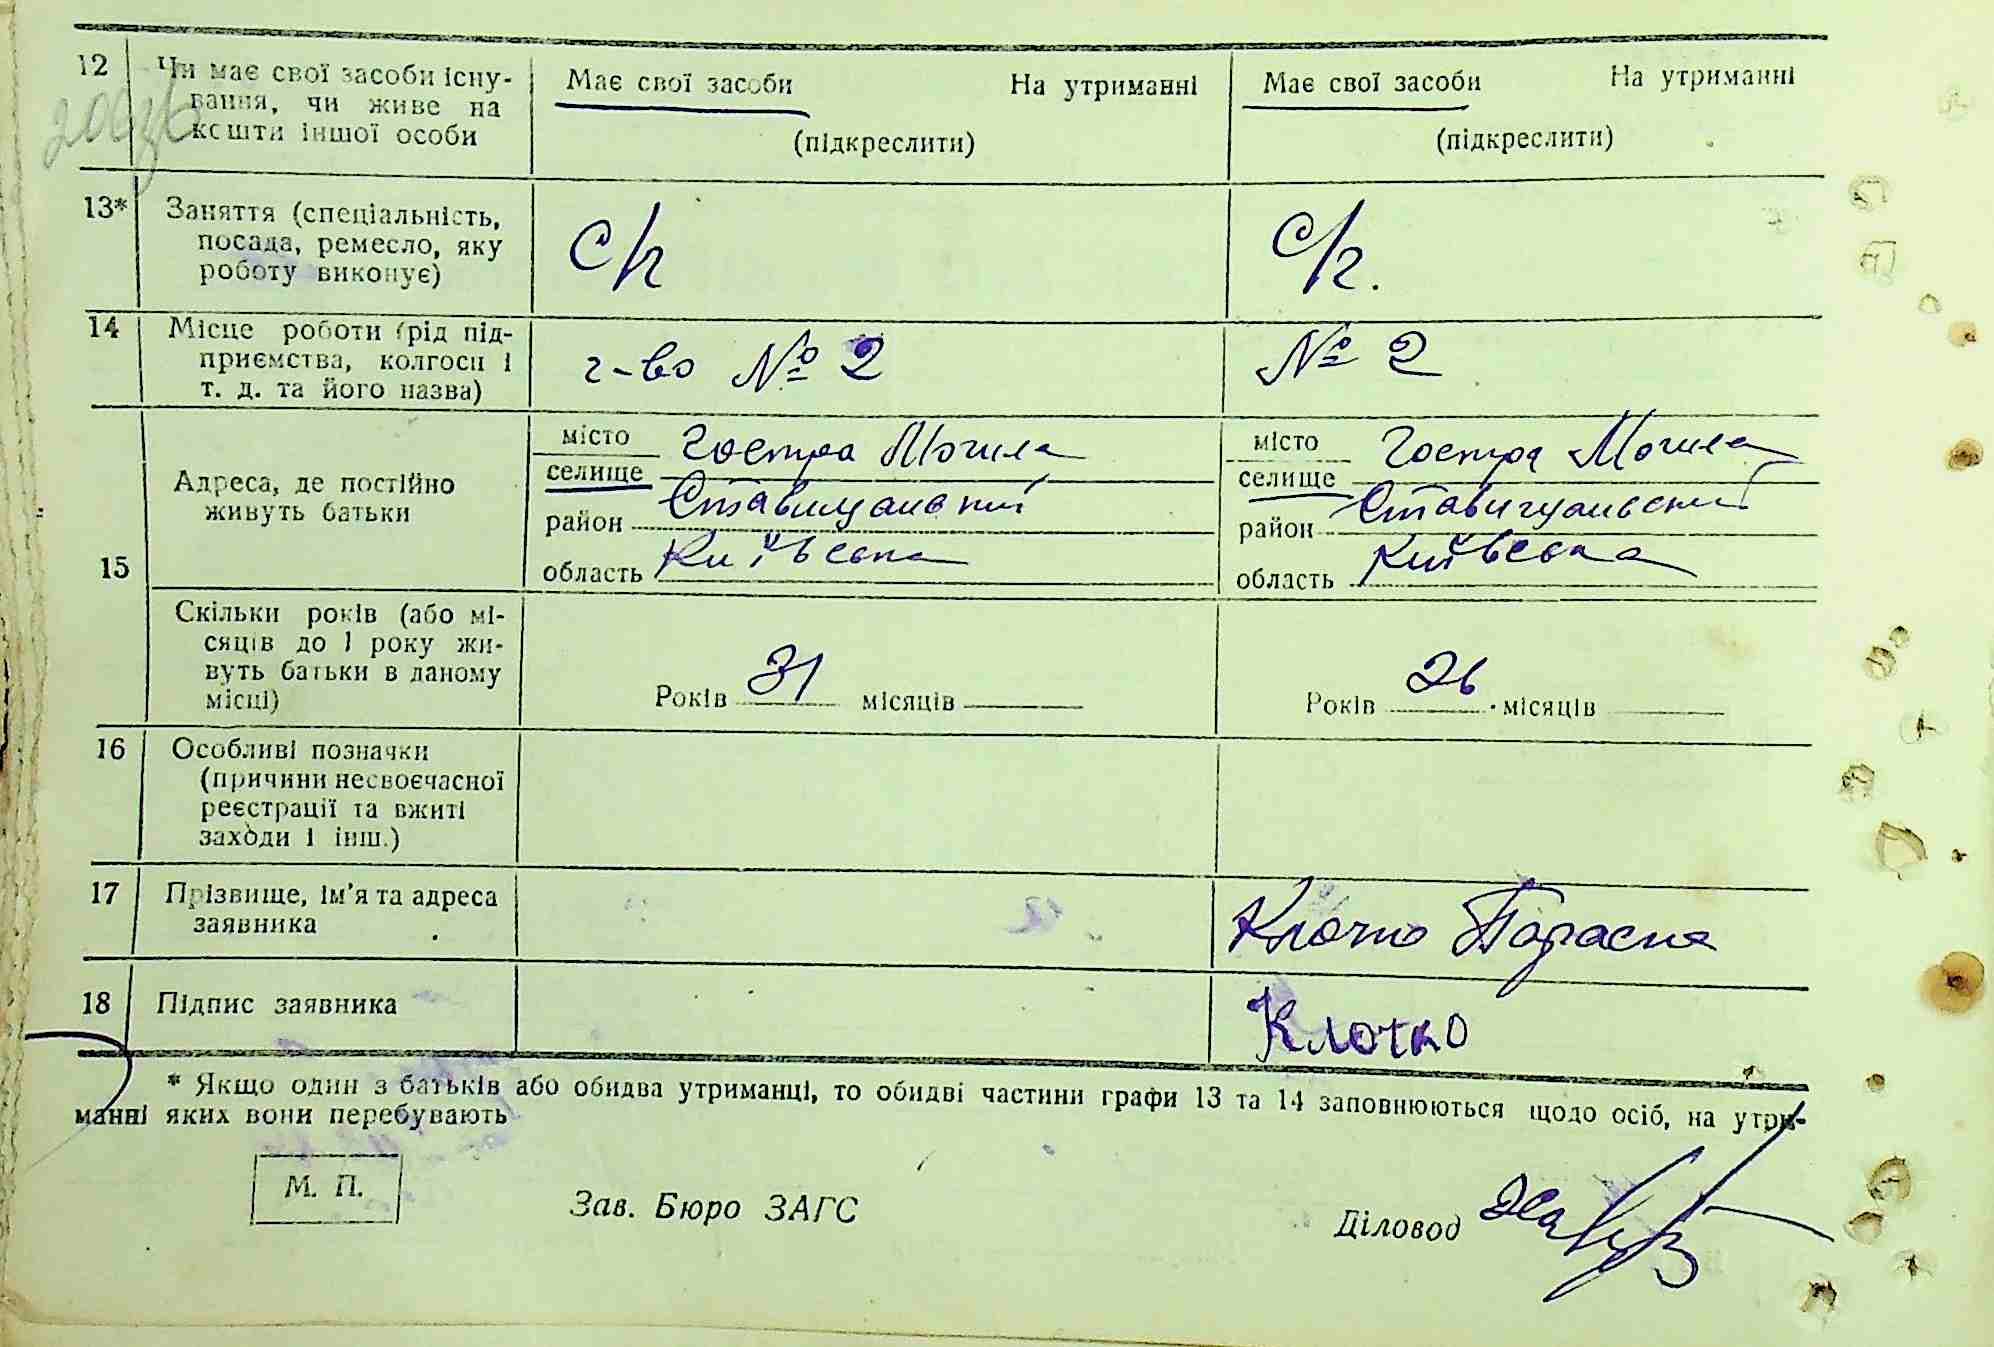 12 Чи має свої засоби існу-
вання, чи живе на
кошти іншої особи
Має свої засоби На утриманні
(підкреслити)
Має свої засоби На утриманні
(підкреслити)
13* Заняття (спеціальність,
посада, ремесло, яку
роботу виконує)
С/г
С/г.
14 Місце роботи (рід під-
приємства, колгосп і
т. д. та його назва)
г-во № 2
№ 2
15
Адреса, де постійно
живуть батьки
місто
селище Гостра Могила
район Ставищанський
область Київська
місто
селище Гостра Могила
район Ставищанський
область Київська
Скільки років (або мі-
сяців до 1 року жи-
вуть батьки в даному
місці)
Років 31 місяців
Років 26 місяців
16 Особливі позначки
(причини несвоєчасної
реєстрації та вжиті
заходи і інш.)
17 Прізвище, ім'я та адреса
заявника
Клочко Параска
18 Підпис заявника
Клочко
* Якщо один з батьків або обидва утриманці, то обидві частини графи 13 та 14 заповнюються щодо осіб, на утри-
манні яких вони перебувають
М. П.
Зав. Бюро ЗАГС
Діловод